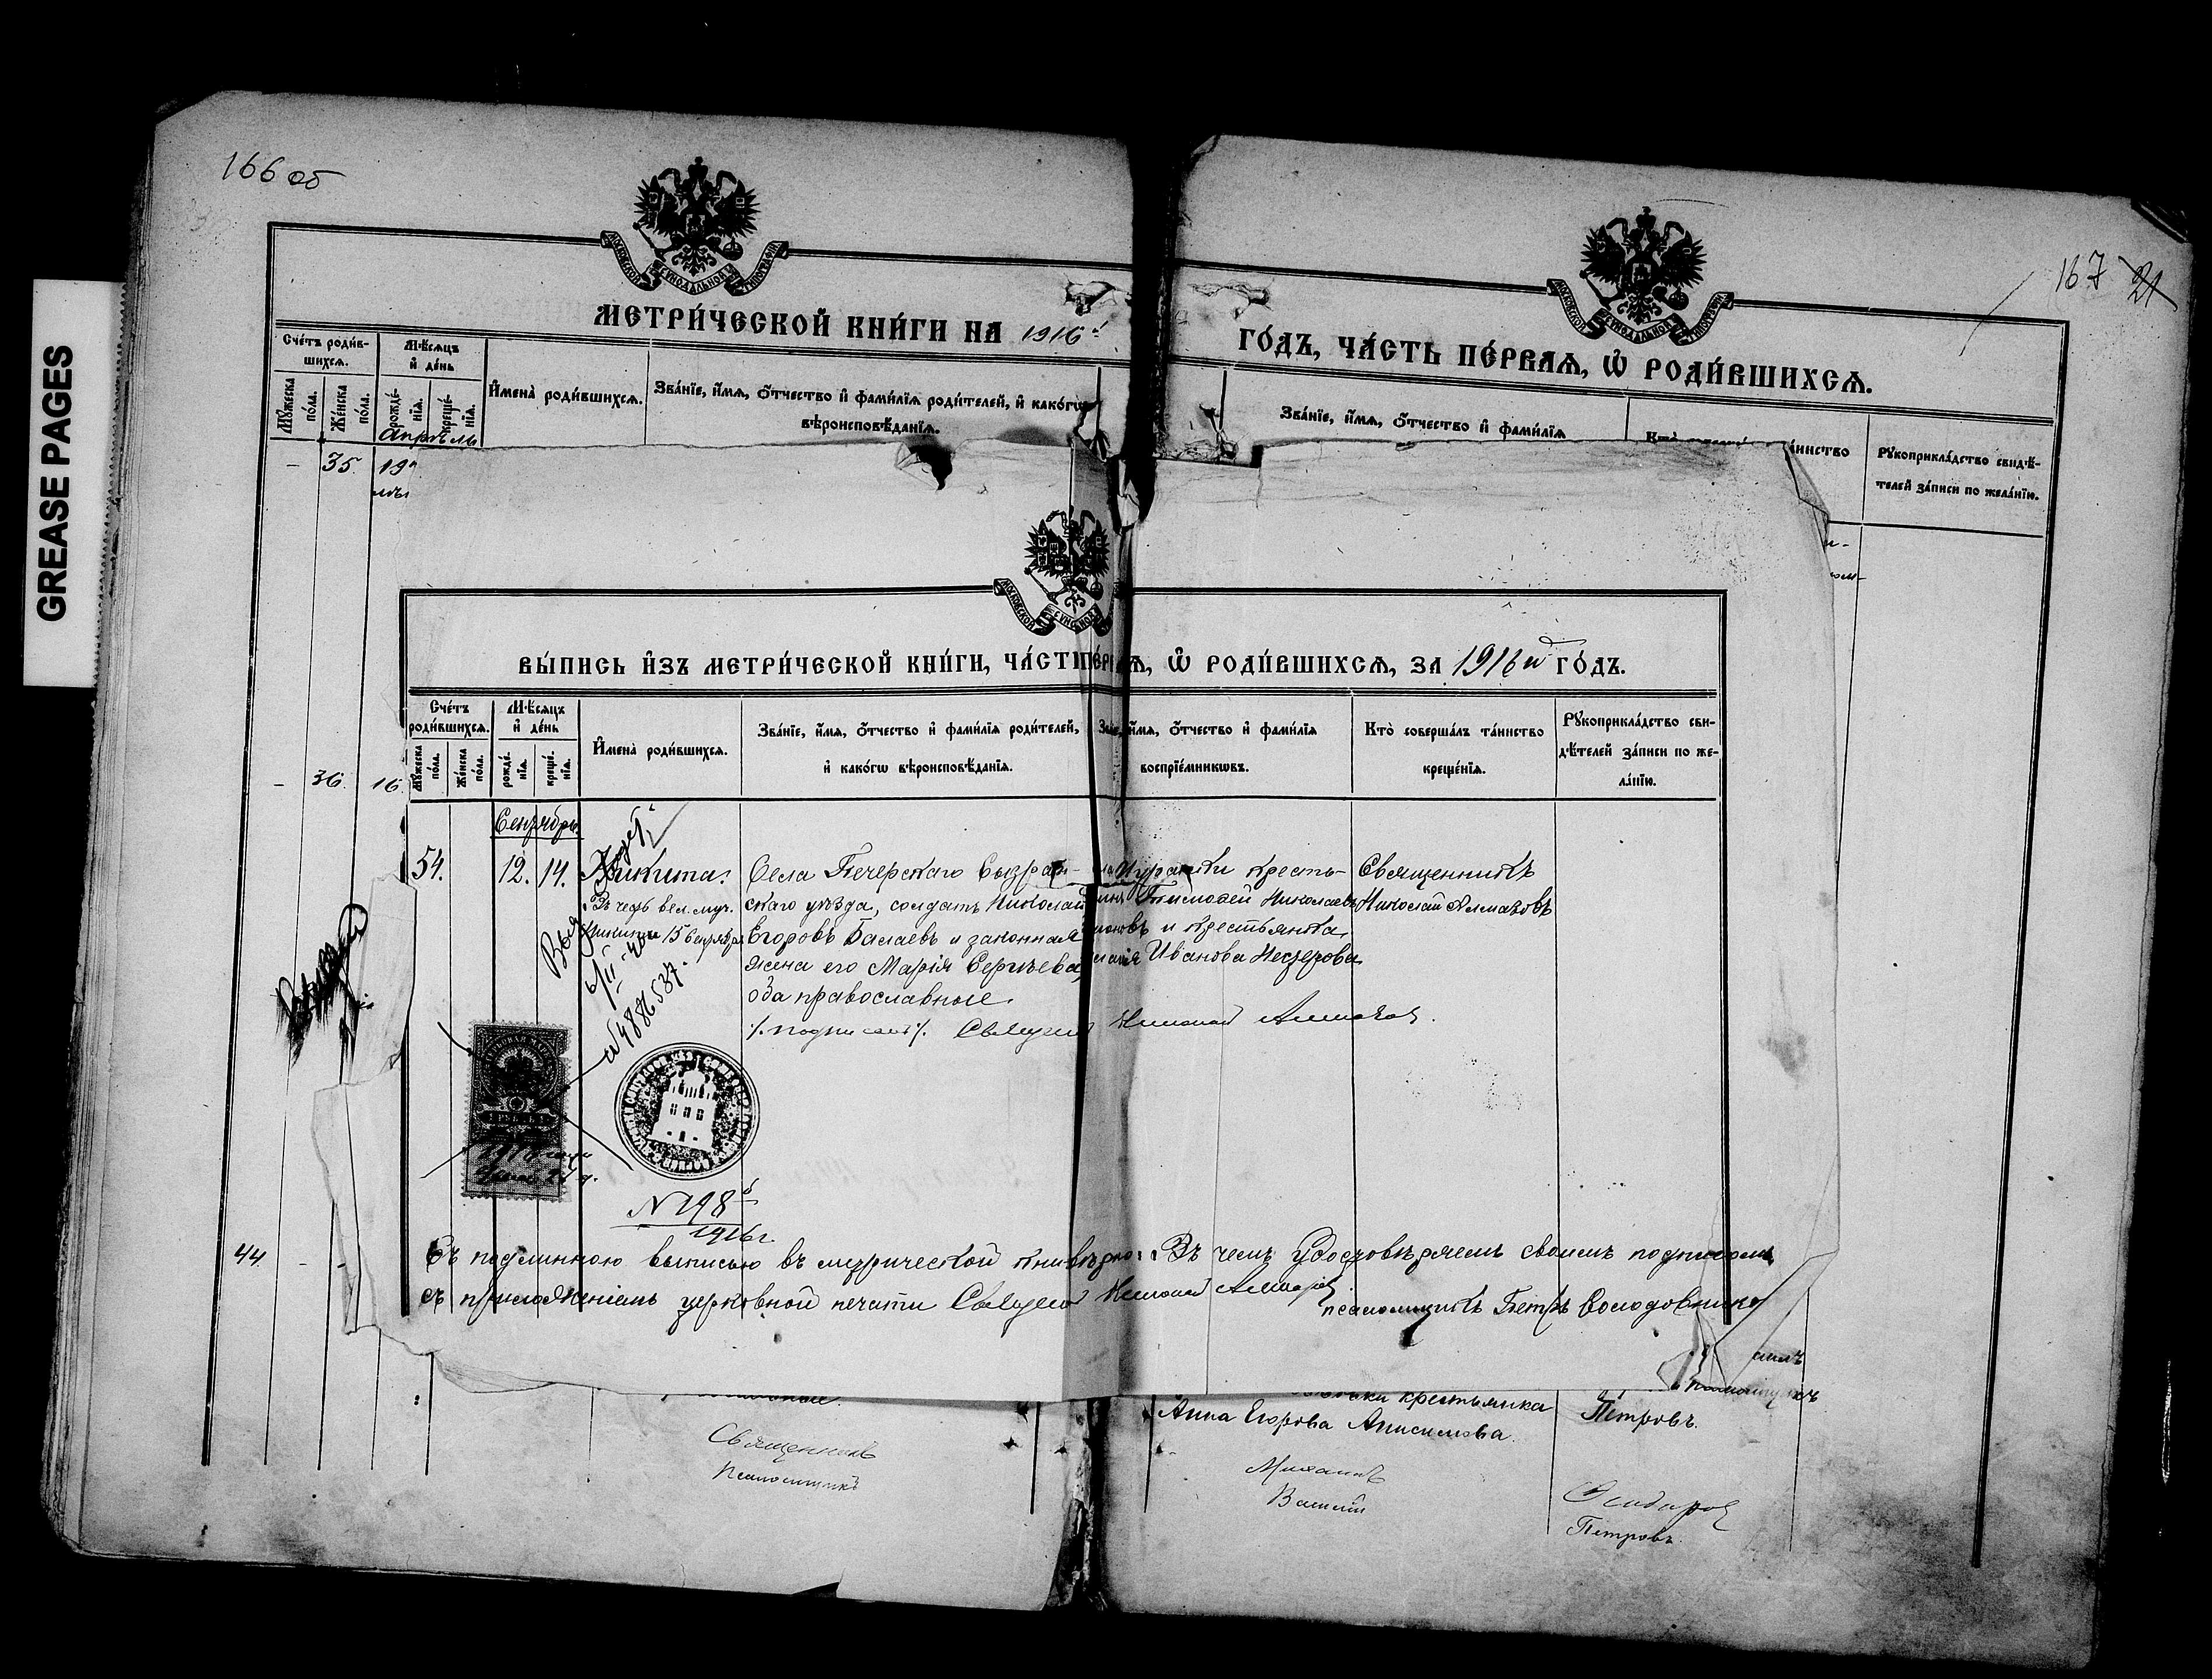 GREASE PAGES
166 об
167 21
МЕТРИ́ЧЕСКОЙ КНИ́ГИ НА 1916й
ГО́ДЪ, ЧА́СТЬ ПЕ́РВАѦ, Ѽ РОДИ́ВШИХСѦ.
Сче́тъ роди́в-
шихсѧ.
Мѣ́сѧцъ
и҆ де́нь
Мꙋ́жеска по́ла.
Же́нска по́ла.
рожде́-
нїѧ.
креще́-
нїѧ.
И҆мена̀ роди́вшихсѧ.
Зва́нїе, и҆́мѧ, ѻ҆́тчество и҆ фами́лїѧ роди́телей, и҆ како́гѡ
вѣроисповѣ́данїѧ.
Зва́нїе, и҆́мѧ, ѻ҆́тчество и҆ фами́лїѧ
Рꙋкоприкла́дство свидѣ́-
телей за́писи по жела́нїю.
Апрѣль
- 35. 19
- 36. 16
44 -
ВЫ́ПИСЬ И҆ЗЪ МЕТРИ́ЧЕСКОЙ КНИ́ГИ, ЧА́СТЬ ПЕ́РВАѦ, Ѽ РОДИ́ВШИХСѦ, ЗА 1916й ГО́ДЪ.
Сче́тъ
роди́вшихсѧ.
Мѣ́сѧцъ
и҆ де́нь
Мꙋ́жеска по́ла.
Же́нска по́ла.
рожде́-
нїѧ.
креще́-
нїѧ.
И҆мена̀ роди́вшихсѧ.
Зва́нїе, и҆́мѧ, ѻ҆́тчество и҆ фами́лїѧ роди́телей,
и҆ како́гѡ вѣроисповѣ́данїѧ.
и҆́мѧ, ѻ҆́тчество и҆ фами́лїѧ
воспрїе́мникѡвъ.
Кто̀ соверша́лъ та́инство
креще́нїѧ.
Рꙋкоприкла́дство сви-
дѣ́телей за́писи по же-
ла́нїю.
Сентябрь
54. 12. 14. Никита.
Въ честь вел. муч.
Никиты 15 сентября
Села Печерскаго Сызран-
скаго уѣзда, солдатъ Николай
Егоровъ Балаевъ и законная
жена его Марія Сергѣева,
оба православные.
крестья-
Тимофей Николаевъ
и крестьянка
Иванова Нестерова
Священникъ
Николай Алмазовъ
/. подписалъ /. Священ Николай Алмазов.
№ 486537.
№ 198й
1916 г.
Съ подлинною выписью въ метрической книгѣ вѣрно: Въ чемъ удостовѣряемъ своимъ подписомъ
съ приложеніемъ церковной печати Священ Николай Алмазов
псаломщикъ Петръ
крестьянка
Анна Егорова Анисимова.
Петровъ.
Священникъ
Псаломщикъ
Михаилъ
Василій
Петровъ.